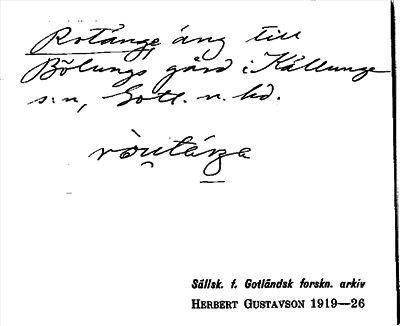 Rotänge, äng till
Bölungs gård i Källunge
s:n, Gotl. n. hd.
Sällsk. f. Gotländsk forskn. arkiv
HERBERT GUSTAVSON 1919—26